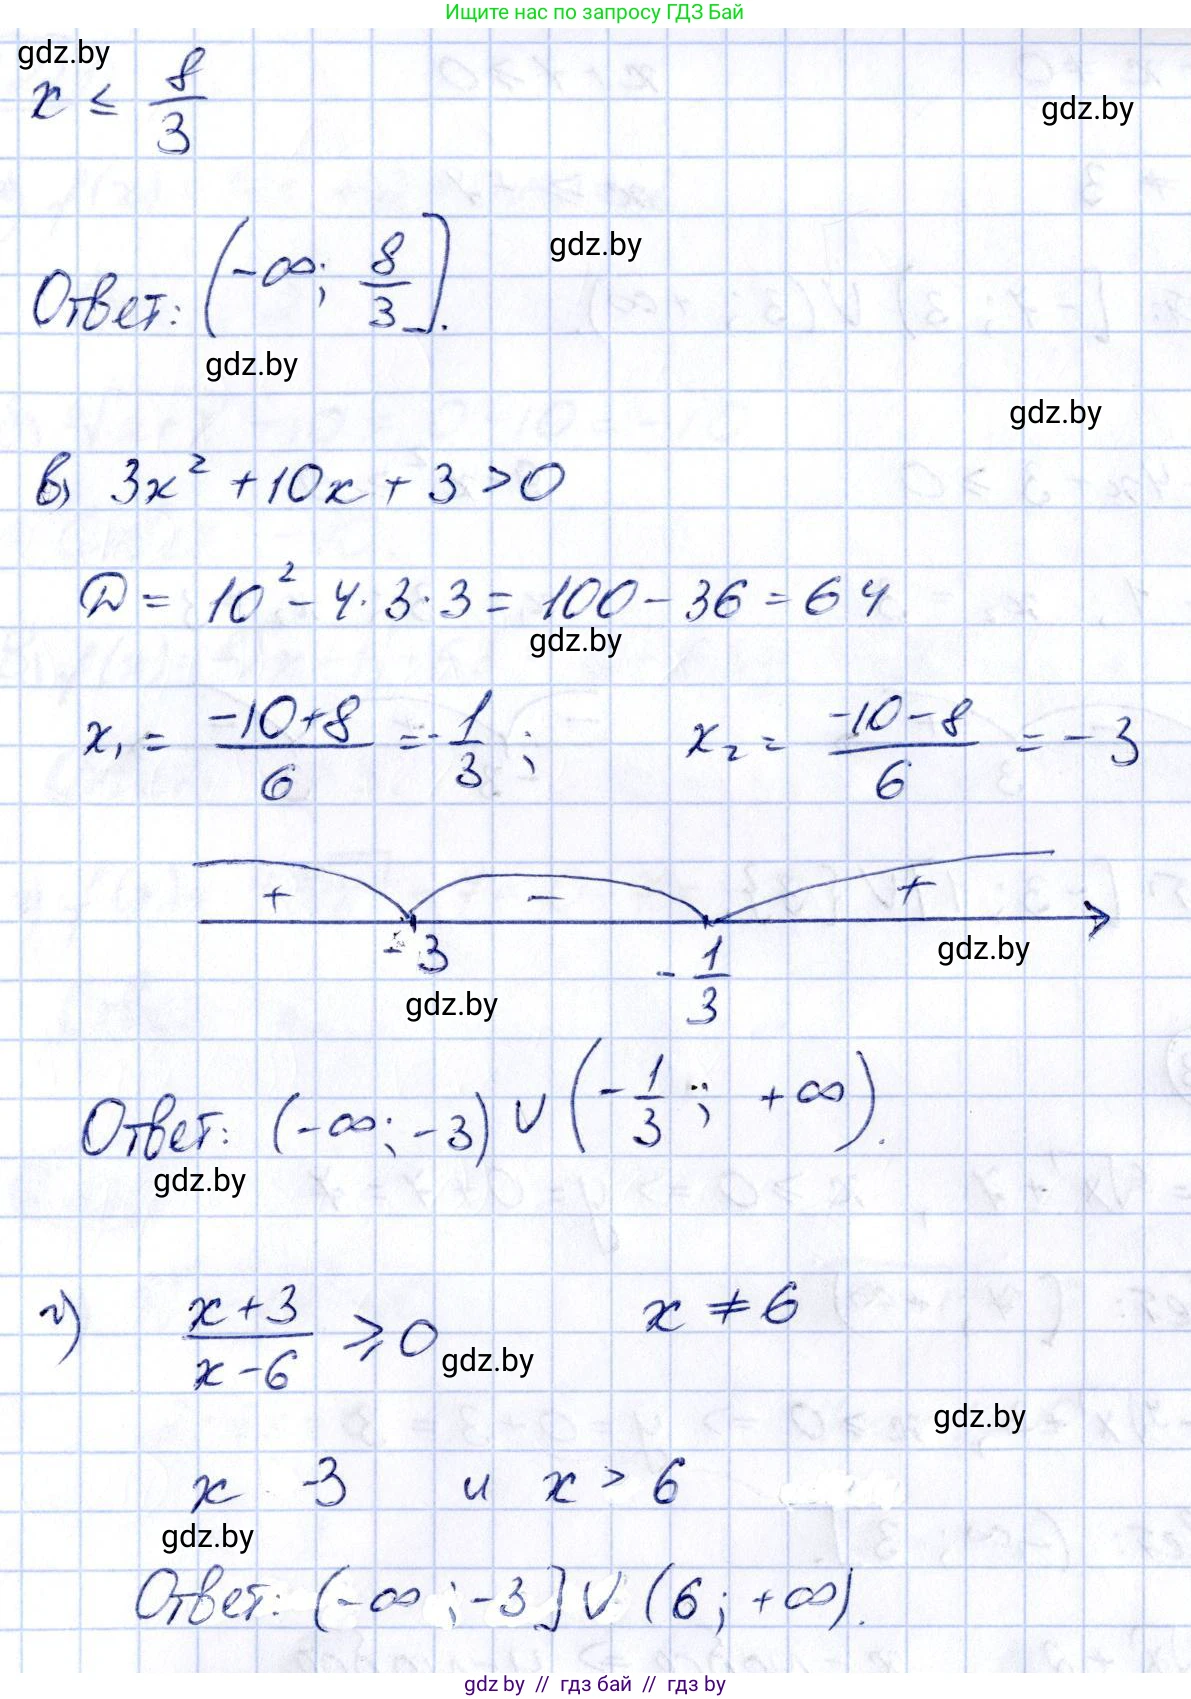 Ищите нас по запросу ГДЗ Бай
gdz.by
x ≤ 8/3
gdz.by
Ответ: (-∞; 8/3].
gdz.by
gdz.by
gdz.by
в) 3x² + 10x + 3 > 0
D = 10² - 4·3·3 = 100 - 36 = 64
gdz.by
x₁ = (-10+8)/6 = -1/3; x₂ = (-10-8)/6 = -3
+ - +
-3 -1/3
gdz.by
gdz.by
Ответ: (-∞; -3) ∪ (-1/3; +∞).
gdz.by
г) (x+3)/(x-6) ≥ 0 x ≠ 6
gdz.by
gdz.by
x -3 и x > 6
gdz.by
Ответ: (-∞; -3] ∪ (6; +∞).
gdz.by // гдз бай // гдз by